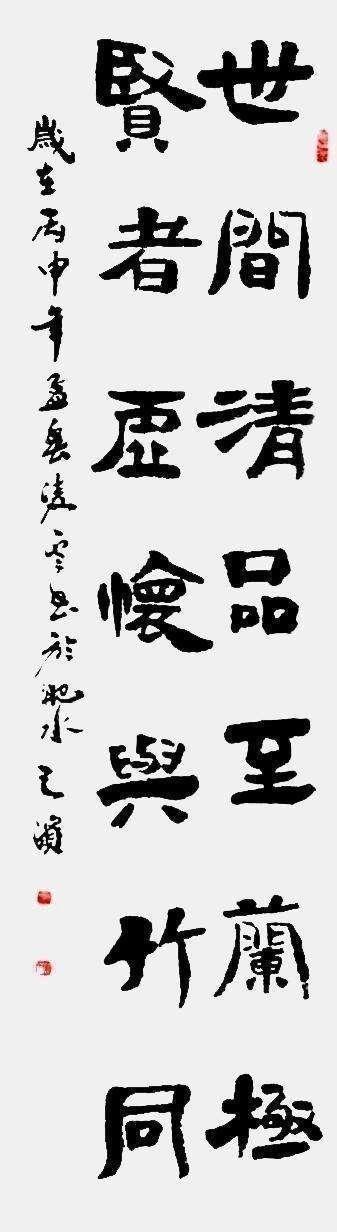 世間清品至蘭極
賢者虛懷與竹同
歲在丙申年孟凌雲書於淝水之濱